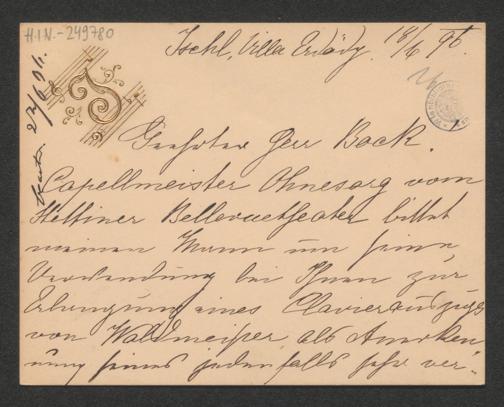 H.I.N.-249780
Ischl, Villa Erdödy. 18/6 96.
23/6 96.
Geehrter Herr Bock.
Capellmeister Ohnesorg vom
Stettiner Bellevuetheater bittet
meinen Mann um seine
Verwendung bei Ihnen zur
Erlangung eines Clavierauszuges
von Waldmeister, als Anerken-
nung seines jedenfalls sehr ver-